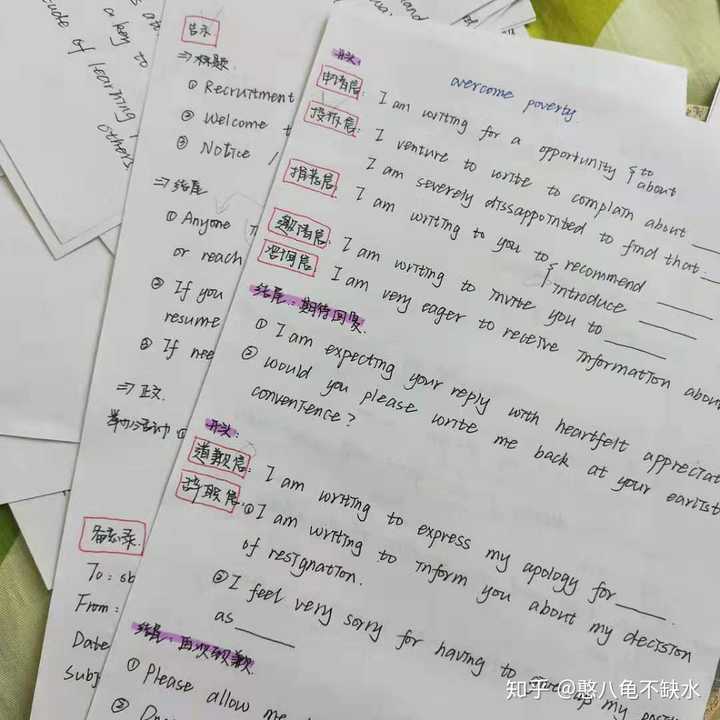 a key to
of learning
others.
告示
⇒标题.
① Recruitment
② Welcome
③ Notice
⇒结尾
① Anyone
or reach
② If you
resume
③ If nee
⇒正文.
举办活动 ①
备忘录.
To:
From:
Date
subj
overcome poverty.
开头:
申请信: I am writing for a opportunity to
about
投诉信: I venture to write to complain about ___
I am severely dissappointed to find that ___
推荐信: I am writing to you to recommend ___
introduce ___
邀请信: I am writing to invite you to ___
咨询信: I am very eager to receive information abou
结尾: 期待回复.
① I am expecting your reply with heartfelt appreciat
② would you please write me back at your earlist
convenience?
开头:
道歉信: I am writing to express my apology for ___.
辞职信: ① I am writing to inform you about my decision
of resignation.
② I feel very sorry for having to give up my
as ___
结尾: 再次致歉.
① Please allow me
②
知乎 @憨八龟不缺水